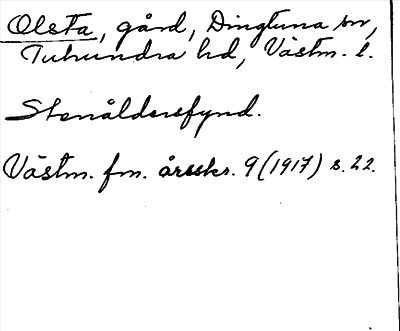 Olsta, gård, Dingtuna sn,
Tuhundra hd, Västm. l.
Stenåldersfynd.
Västm. fm. årsskr. 9 (1917) s. 22.